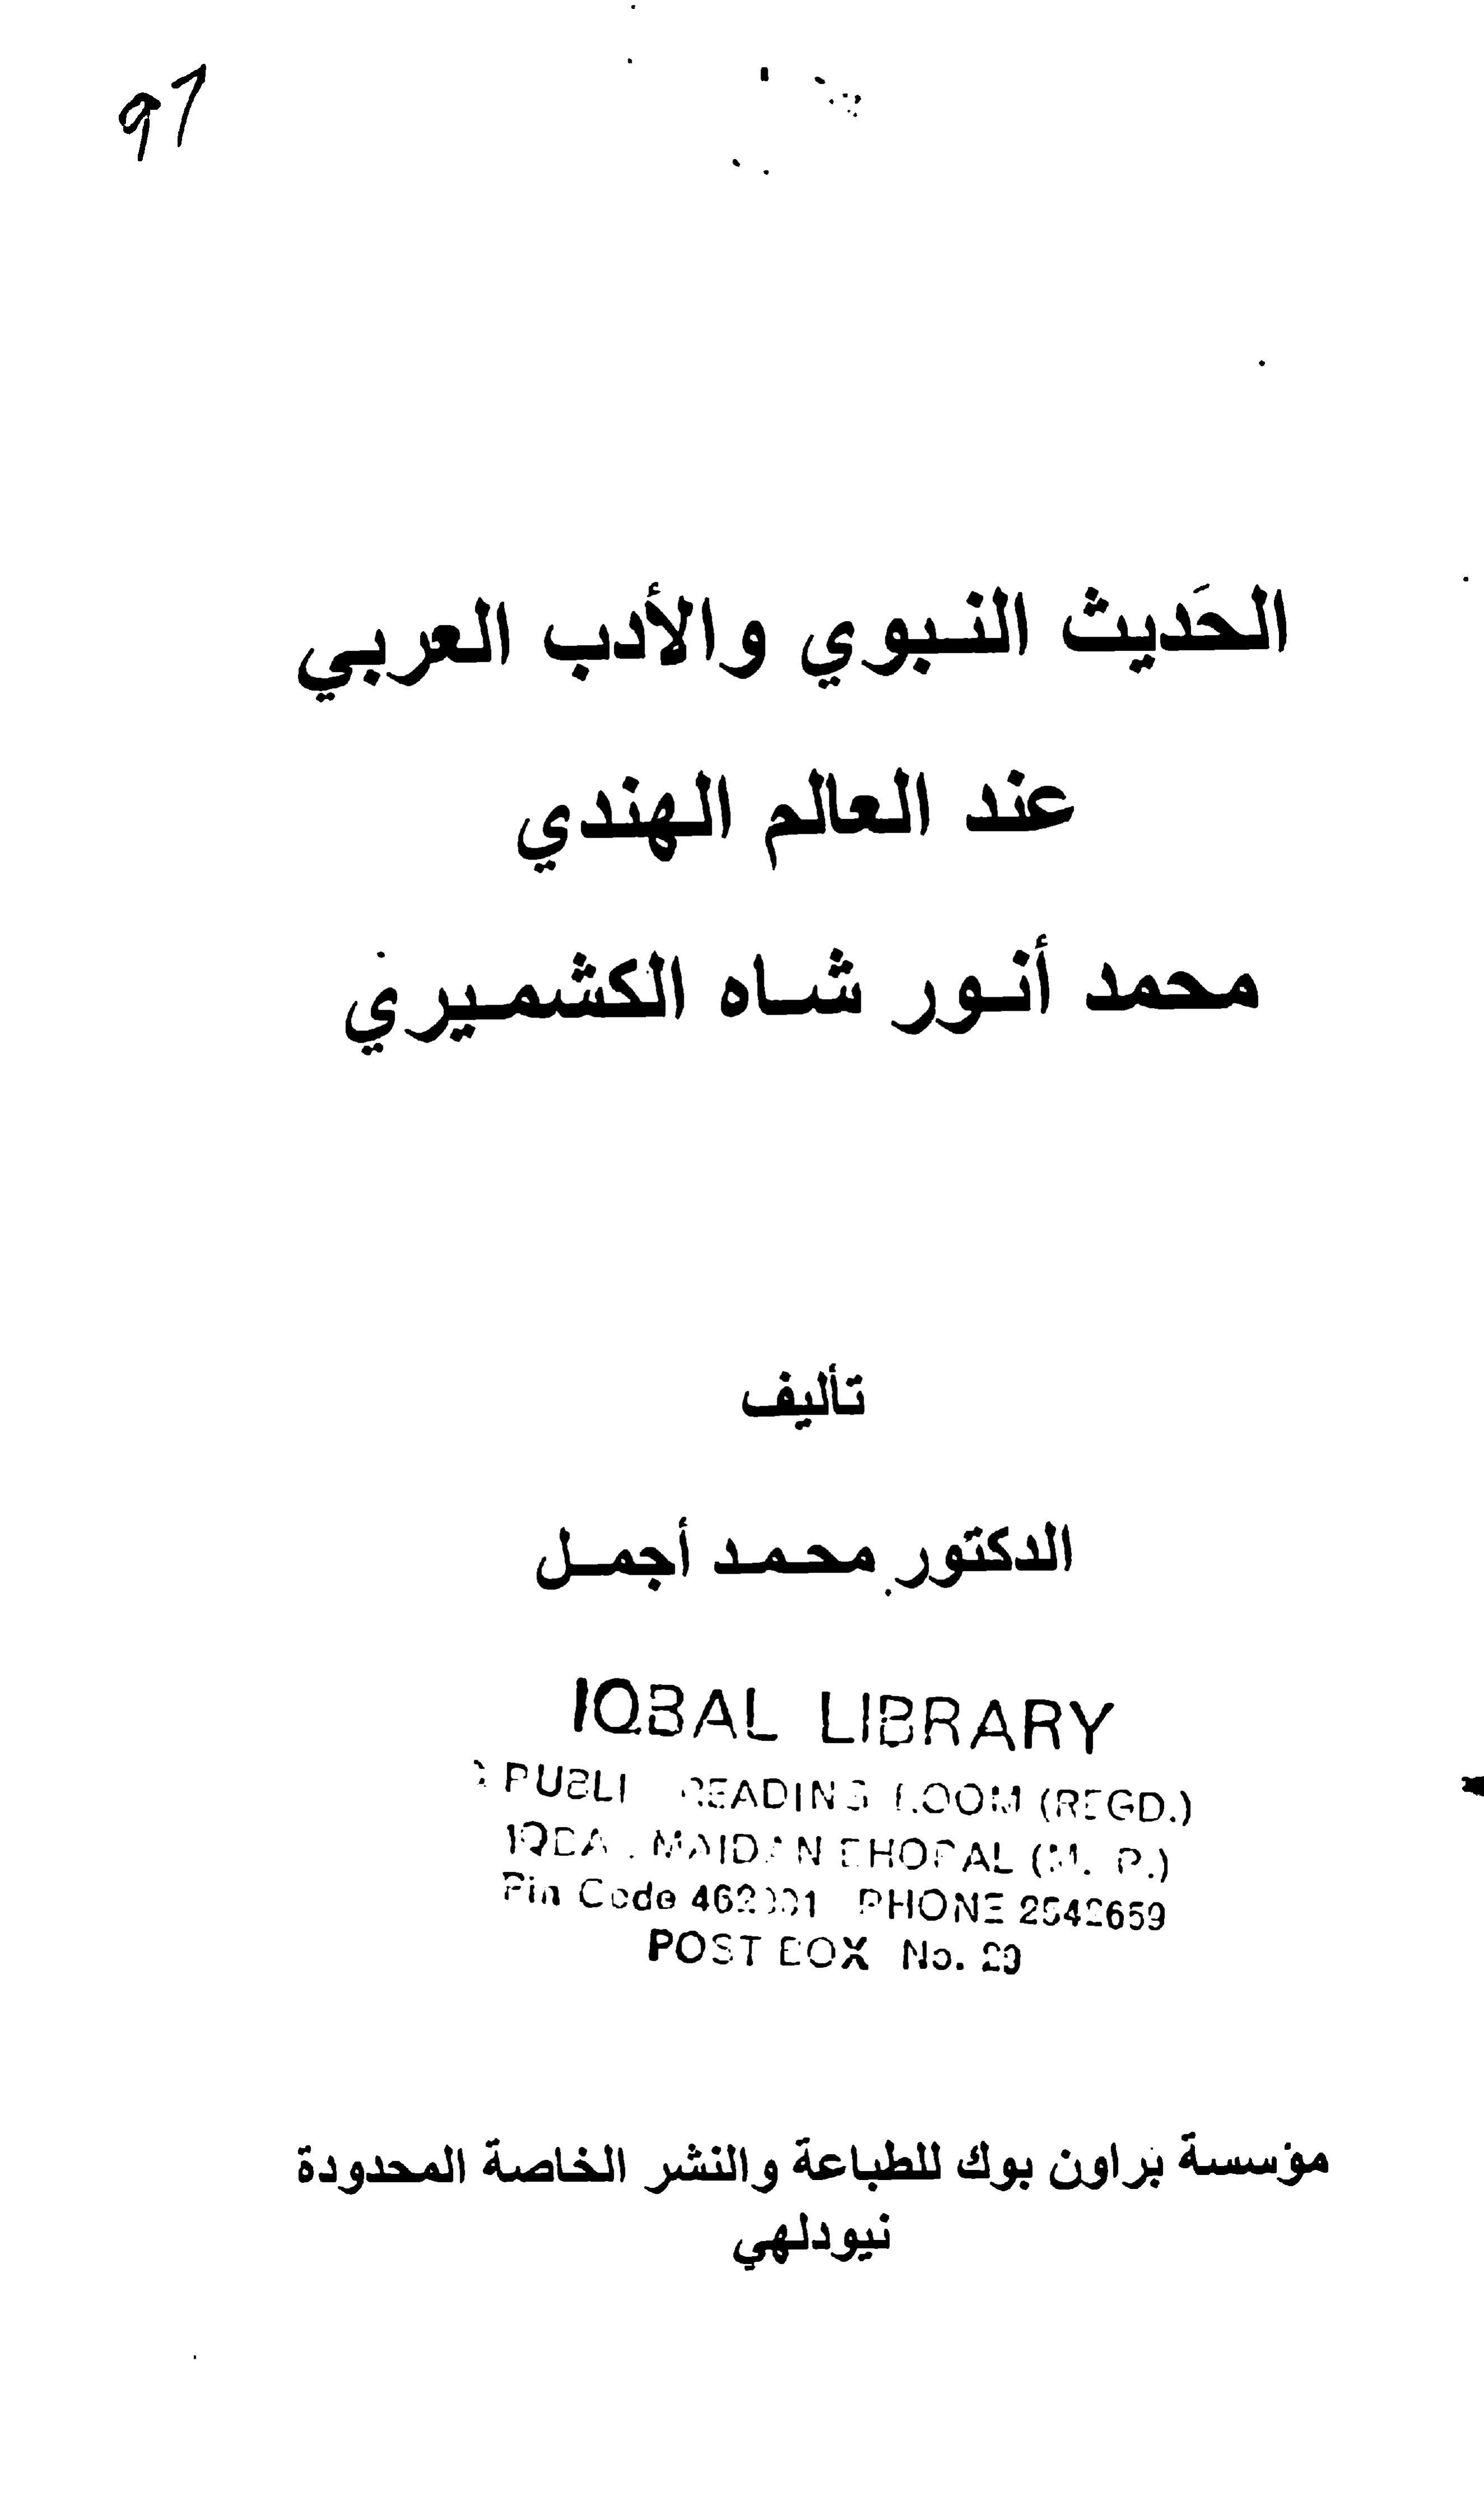 ٩٦
الحديث النبوي والأدب العربي
عند العالم الهندي
محمد أنور شاه الكشميري
تأليف
الدكتور محمد أجمل
IQBAL LIBRARY
READING ROOM (REGD.)
BHOPAL (M. P.)
Pin Code PHONE
POST BOX No.
مؤسسة براون بوك للطباعة والنشر الخاصة المحدودة
نيودلهي